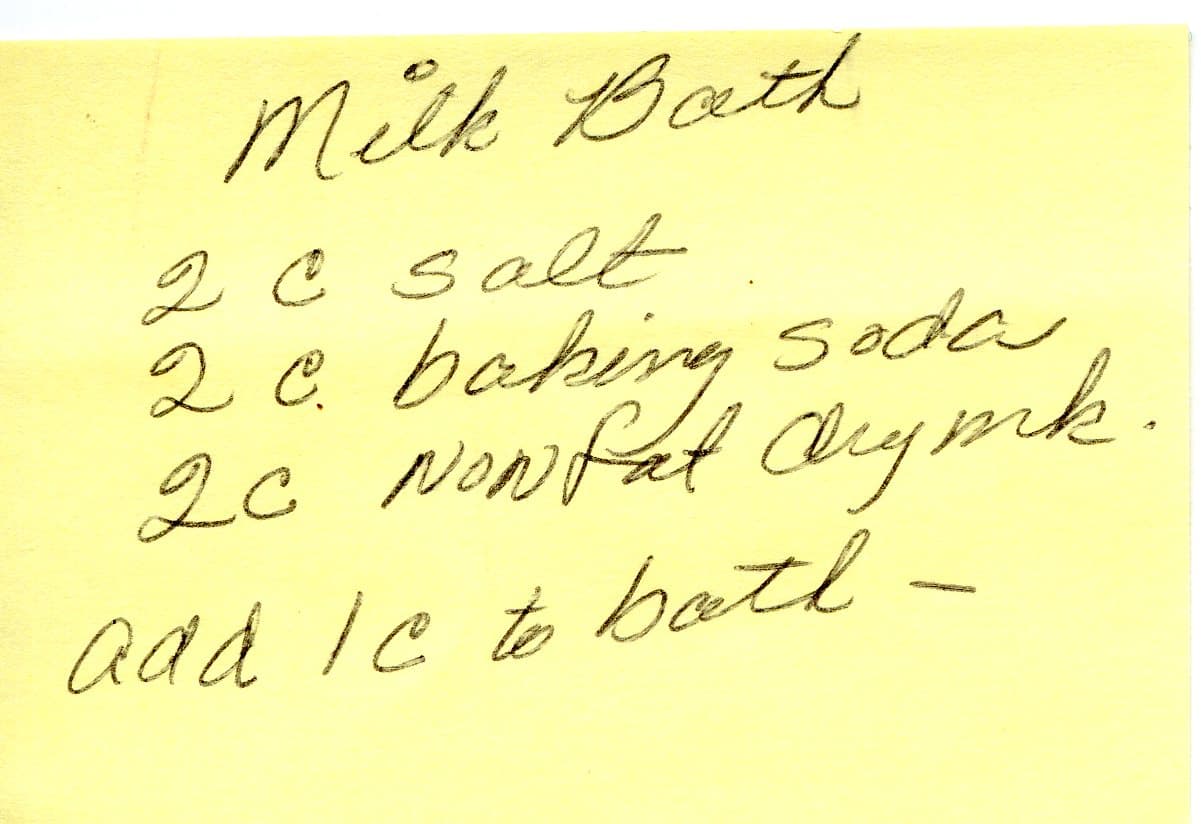 Milk Bath
2 c salt
2 c. baking soda
2 c Nonfat dry mk.
add 1 c to bath -